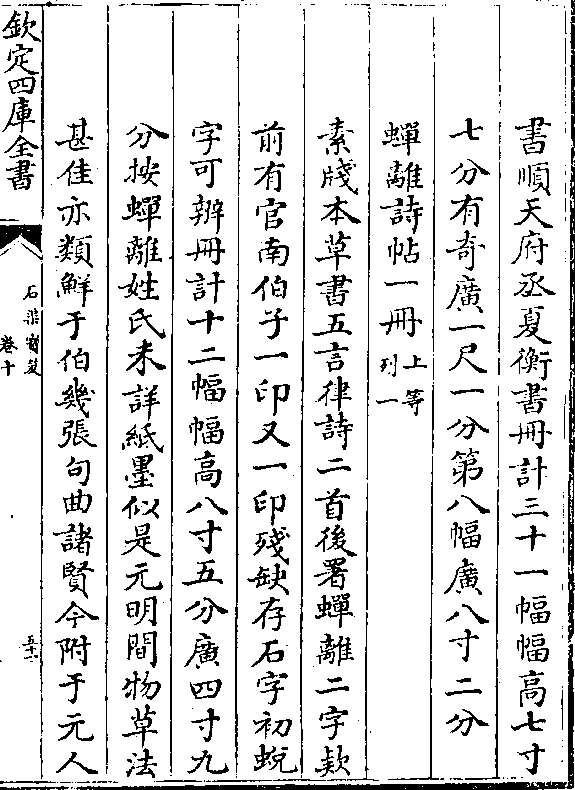 書順天府丞夏衡書冊計三十一幅幅高七寸
七分有奇廣一尺一分第八幅廣八寸二分
蟬離詩帖一冊上等列一
素牋本草書五言律詩二首後署蟬離二字款
前有官南伯子一印又一印殘缺存石字初蛻
字可辨冊計十二幅幅高八寸五分廣四寸九
分按蟬離姓氏未詳紙墨似是元明間物草法
甚佳亦類鮮于伯幾張句曲諸賢今附于元人
欽定四庫全書
石渠寶笈
卷十